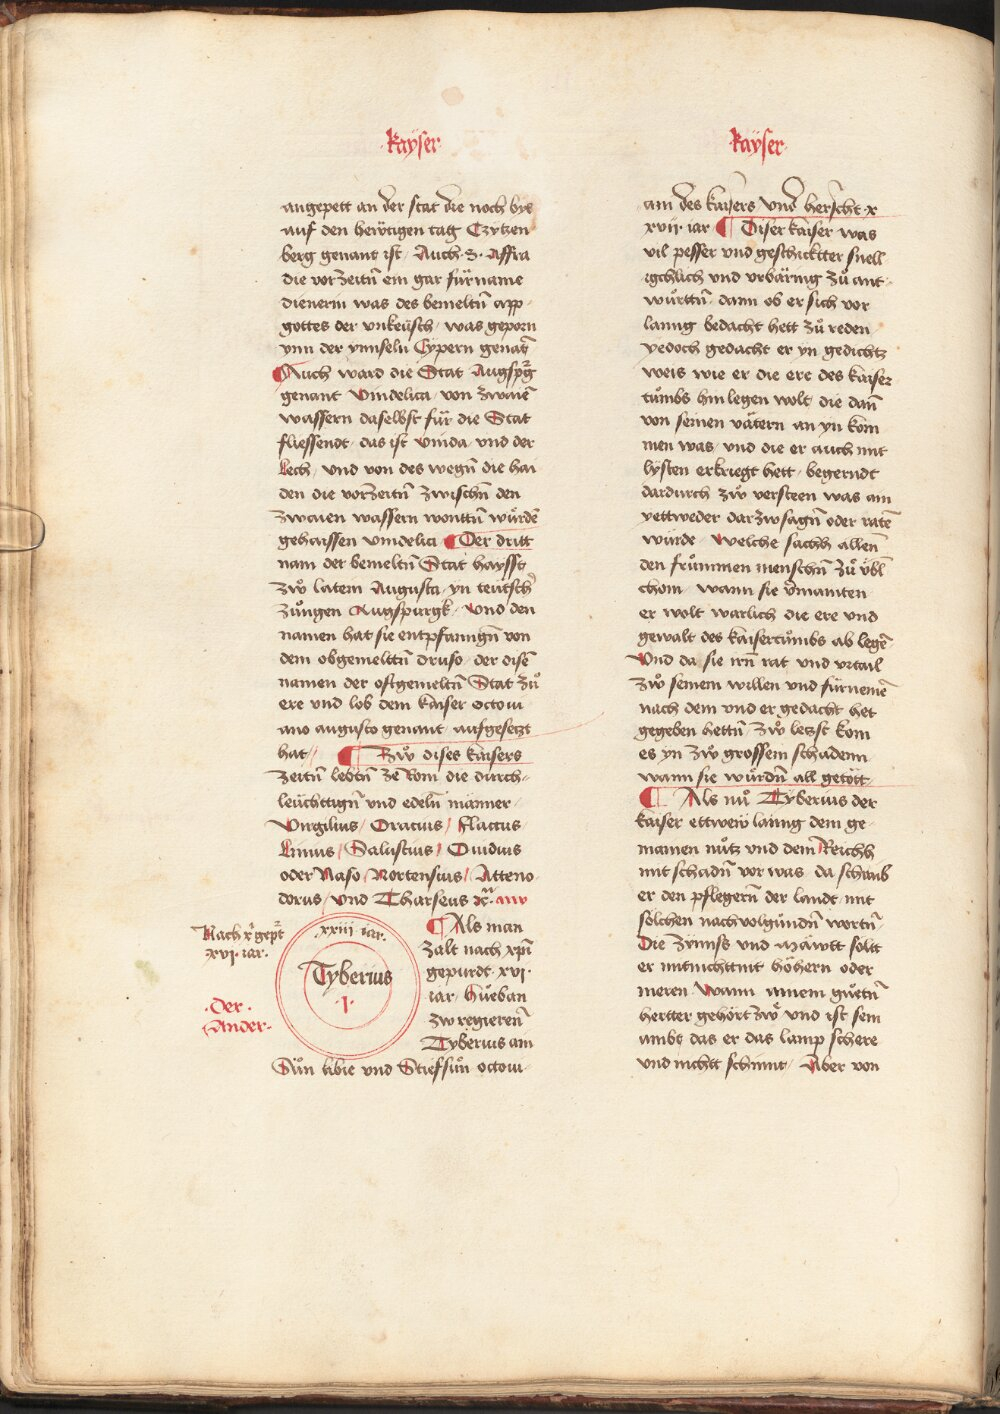 ·kaÿser·
angepett an der stat die noch bys
auf den heẅtigen tag Czytzen
berg genant ist / Auch · S · Affra
die vorzeitn̄ ein gar fürname
dienerin was des bemeltn̄ app
gottes der vnkeüsch / was geporn
ynn der ynnseln Cypern genāt
¶ Auch ward die Stat Augspḡ
genant Vindelica / von zwaiē
wassern daselbst für die Stat
fliessendt / das ist vinda / vnd der
Lech / vnd von des wegn̄ die hai
den die vorzeitn̄ zwischn̄ den
zwaien wassern wonttn̄ wůrdē
gehaissen vindelici ¶ Der dritt
nam der bemeltn̄ Stat haysst
zẘ latein Augusta / yn teütsch̄
zůngen Augspurgk / Vnd den
namen hat sie entpfanngn̄ von
dem obgemelttn̄ druso / der disē
namen der oftgemeltn̄ Stat zů
ere vnd lob dem kaiser octoui
ano augusto genant / aufgesetzt
hat // ¶ Zẘ dises kaisers
zeitn̄ lebtn̄ ze Rom die durch-
leüchttign̄ vnd edeln̄ männer /
Virgilius / Oracius / flaccus
Linius / Salustius / Ouidius
oder Naso / Nortensius / Atteno
dorus / vnd Tharseus ꝛc̄
Nach x̄ gep̄t
·xvi· iar·
·xxiii· iar·
Tyberius
·I·
·Der·
·Ander·
¶ Als man
zalt nach xp̄i
gepurdt · xvi ·
iar / hůeban
zw regierēn
Tyberius am
Sůn libie vnd Stiefsůn octoui-
·kaÿser·
am des kaisers vnd herscht · x
xvii · iar ¶ Diser kaiser was
vil pesser vnd geschicktter snell
igchlich vnd vrbäring zů ant
wurttn̄ / dann ob er sich vor
lanng bedacht hett zů reden
yedoch gedacht er yn gedichtz
weis wie er die ere des kaiser
tůmbs hin legen wolt / die dan̄
von seinen vätern an yn kom
men was / vnd die er auch mit
lysten erkriegt hett / begerndt
dardurch zẘ versteen was am
yettweder darzw sagn̄ oder ratē
wurde / Welche sachh allen̄
den frůmmen menschn̄ zů v̈bl̄
chom / wann sie v̄mainten
er wolt warlich die ere vnd
gewalt des kaisertůmbs ab legē
Vnd da sie irn̄ rat vnd vrtail
zẘ seinem willen vnd fürnemē
nach dem vnd er gedacht het
gegeben hettn̄ / zẘ letzst kom
es yn zẘ grossem schadenn
wann sie wůrdn̄ all getött /
¶ Als nů Tyberius der
kaiser ettweio lanng dem ge
mainen nůtz vnd dem Reichh
mit schadn̄ vor was / da schraib
er den pflegern̄ der landt / mit
sölchen nachvolgůndn̄ wortn̄ /
Die zynnss vnd mäwtt sollt
er mitnichttnit höhern oder
meren / Wann ainem gůetn̄
hertter gehört zẘ / vnd ist sein
ambt das er das lamp schere
vnd nichtt schinnt / Aber von